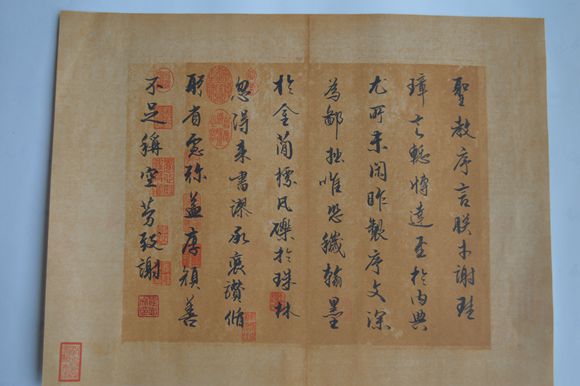 聖教序言朕才謝珪
璋言慙博達至於內典
尤所未閑昨製序文深
為鄙拙唯恐穢翰墨
於金簡標瓦礫於珠林
忽得來書謬承褒讚循
躬省慮弥益厚顏善
不足稱空勞致謝